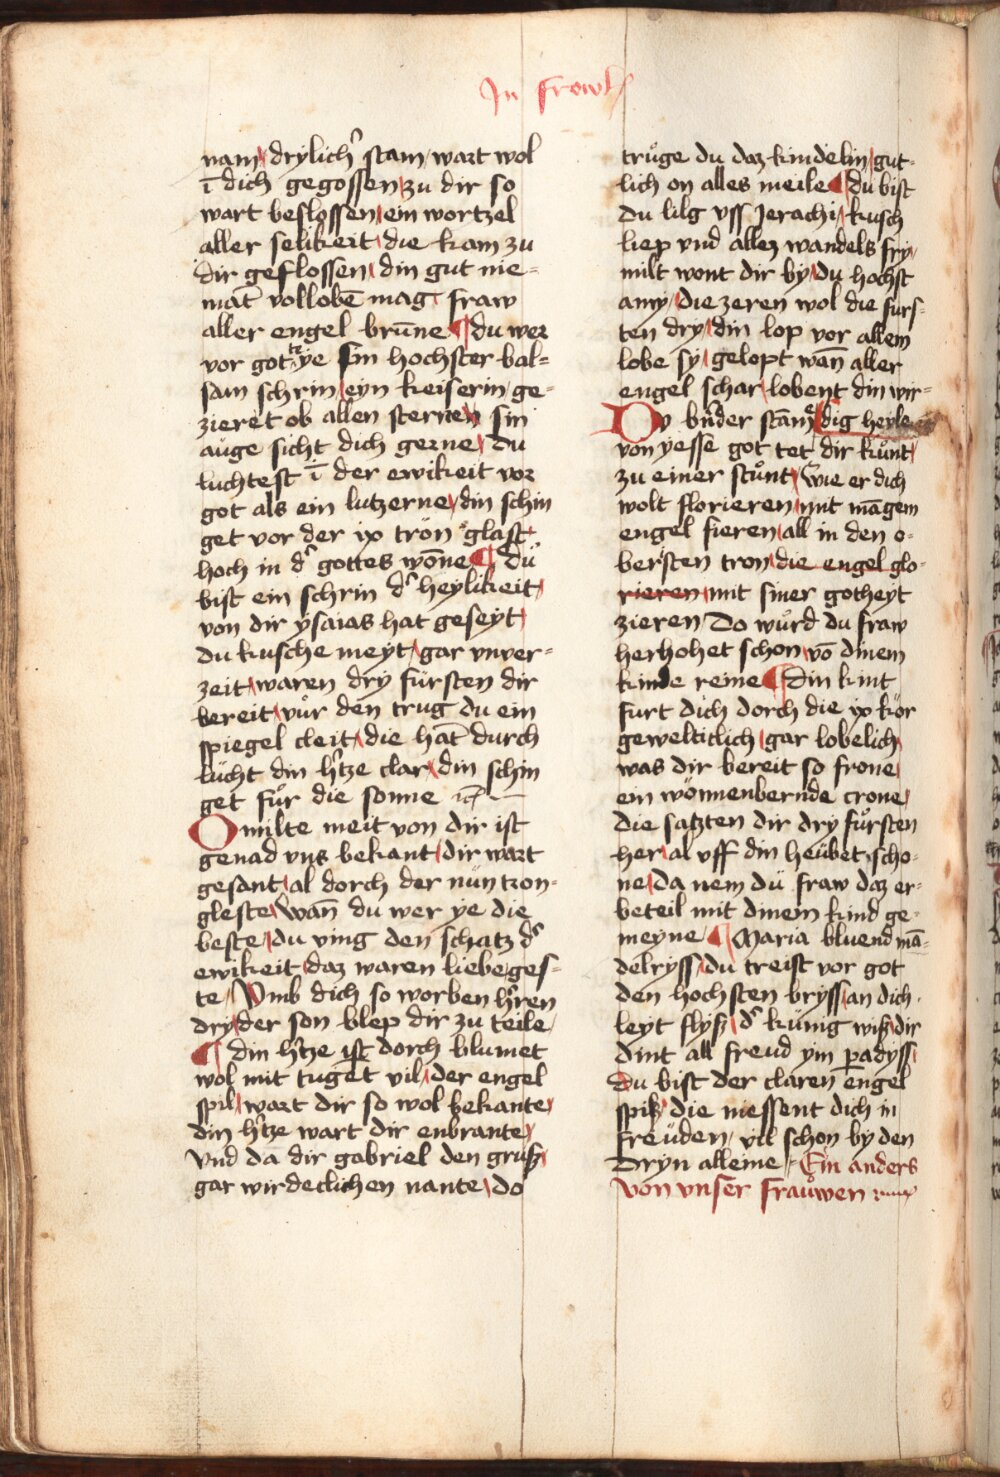 In frowl
nam / drylich' stam / wart wol
ī dich gegossen / zu dir so
wart beslossen / ein wortzel
aller selikeit / die kam zu
dir geflossen / din gut nie=
māt vollobē mag / fraw
aller engel brūne ¶ du wer
vor got ye sin hochster bal=
sam schrin / eyn keiserin / ge=
zieret ob allen sternen sin
auge sicht dich gerne / du
luchtest ī der ewikeit vor
got als ein lutzerne / din schin
get vor der ix tron glast
hoch in d' gottes wōne ¶ dü
bist ein schrin d' heylikeit /
von dir ysaias hat geseyt /
du kusche meyt / gar vnver=
zeit / waren dry fürsten dir
bereit / vůr den trug du ein
spiegel cleit / die hāt durch
lücht din h'tze clar / din schin
get fůr die sonne
O milte meit von dir ist
genad vns bekant / dir wart
gesant / al dorch der nün tron=
gleste / wān du wer ye die
beste / du ving den schatz d'
ewikeit / daz waren liebe ges=
te / Vmb dich so worben h'ren
dry / der son blep dir zu teile /
¶ din h'tze ist dorch blumet
wol mit tuget vil / der engel
spil / wart dir so wol bekante /
din h'tze wart dir enbrante /
vnd da dir gabriel den gruß /
gar wirdeclichen nante / do
trůge du daz kindelin / gut=
lich on alles meile ¶ du bist
du lilg vss Jerachi / kusch
liep vnd allez wandels fry /
milt wont dir by / du hochst
amy / die zeren wol die furs=
ten dry / din lop vor allem
lobe sy / gelopt wān aller
engel schar / lobent din wir=
dig heyle
Dv bn̄der stām
von yesse got tet dir kůnt /
zu einer stůnt / Wie er dich
wolt florieren / mit māgem
engel fieren / all in den o=
bersten tron / die engel glo=
rieren / mit siner gotheyt
zieren / Do wůrd du fraw
herhohet schon / vō dinem
kinde reine ¶ din kint
furt dich dorch die ix kör
geweltclich / gar lobelich /
was dir bereit so frone /
ein wönnenbernde crone /
die satzten dir dry fůrsten
her / al vff din heübet / scho=
ne / da nem dü fraw daz er=
beteil mit dinem kind ge=
meyne ¶ Maria bluend mā=
delryss / du treist vor got
den hochsten bryss / an dich
leyt flyß / d' künig wiß / dir
dint all freud ym padyss /
du bist der claren engel
spiß / die niessent dich in
freüden / vil schon by den
dryn alleine / Ein anders
von vnser fraůwen